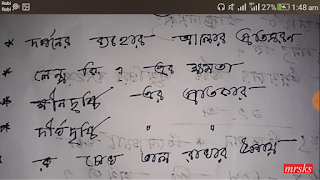 Robi
Robi
4G
27%
1:48 am
* দর্পনের ব্যবহার আলোর প্রতিসরন
* লেন্স কি ? এর ক্ষমতা
* ক্ষীনদৃষ্টি -এর প্রতিকার
* দীর্ঘদৃষ্টি " "
* চোখ ভাল রাখার উপায়
mrsks